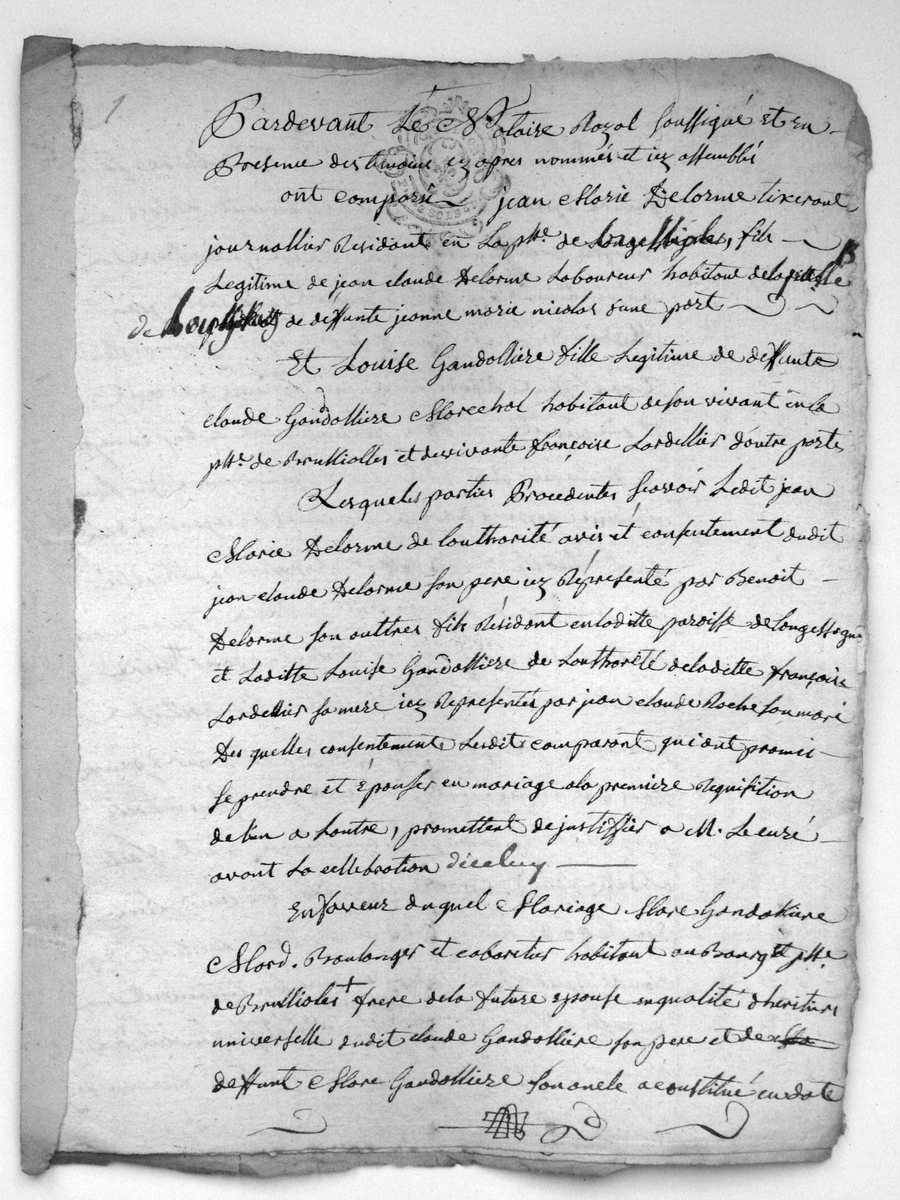 1
Pardevant Le Notaire Royal soussigné et en
Presence des temoins icy apres nommés et icy assemblés
ont comparû jean Marie Delorme tixerant
journallier Residant en La pss.e de fils
Legitime de jean claude Delorme Laboureur habitant de
de de deffunte jeanne marie nicolas d'une part
Et Louise Gandolliere fille Legitime de deffunte
claude Gandolliere Marechal habitant de son vivant en la
psse. de Brullioles et de vivante françoise Lardellier d'autre partie
Lesqueles parties Procedentes scavoir Ledit jean
Marie Delorme de L'authorité avis et consentement dudit
jean claude Delorme son pere icy Représenté par Benoit
Delorme son auttres fils Résidant en ladite paroisse de Longessagne
et Laditte Louise Gandolliere de L'authorité de laditte françoise
Lardellier sa mere icy Representés par jean claude Roche son mari
Des quelles consentement, Lesdit comparant qui ont promi
se prendre et épouser en mariage a la premiere Requisition
de l'un a L'autre, promettent de justiffier a M. Le curé
avant La cellebration d'iceluy
En faveur duquel Mariage Marc Gandolliere
March. Boulanger et cabaretier habitant au Bourg et psse.
de Brullioles + frere de la future epouse en qualité d'heritiers
universelle dudit claude Gandolliere son pere et de
deffunt Marc Gandolliere son oncle a constitué en dote